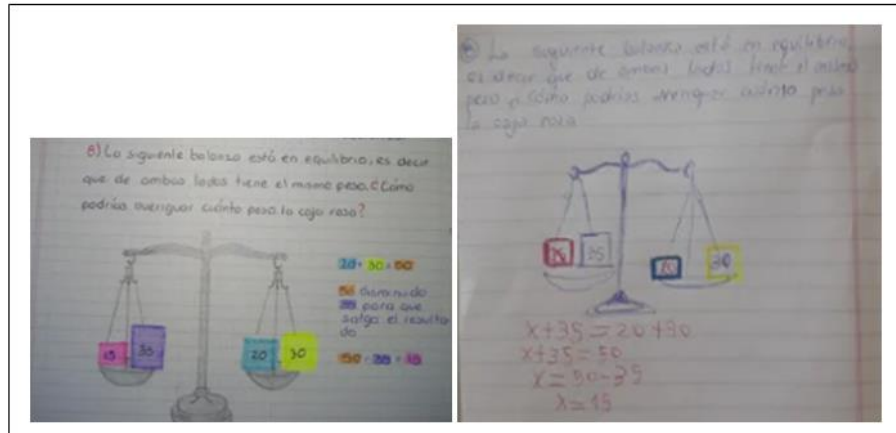 8) La siguiente balanza está en equilibrio, es decir
que de ambos lados tiene el mismo peso. ¿Cómo
podrías averiguar cuánto pesa la caja rosa?
20 + 30 = 50
50 disminuido
35 para que
salga el resulta
do
50 - 35 = 15
15 35 20 30
8 La siguiente balanza está en equilibrio,
es decir que de ambos lados tiene el mismo
peso ¿Cómo podrías averiguar cuánto pesa
la caja rosa
15 35 30
x+35=20+30
x+35=50
x=50-35
x=15